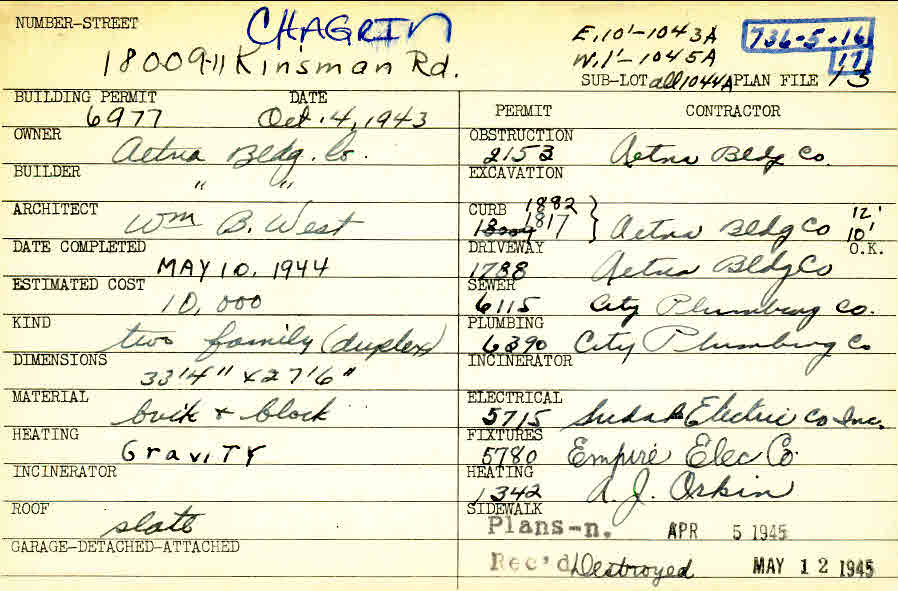 NUMBER-STREET
CHAGRIN
18009-11 Kinsman Rd.
E. 10'-1043A
W. 1'-1045A
SUB-LOT all 1044A PLAN FILE 13
736-5-16
17
BUILDING PERMIT DATE
6977 Oct. 4, 1943
OWNER
Aetna Bldg. Co.
BUILDER
" "
ARCHITECT
Wm B. West
DATE COMPLETED
MAY 10, 1944
ESTIMATED COST
10,000
KIND
two family (duplex)
DIMENSIONS
33'4" x 27'6"
MATERIAL
brick + block
HEATING
Gravity
INCINERATOR
ROOF
slate
GARAGE-DETACHED-ATTACHED
PERMIT CONTRACTOR
OBSTRUCTION
2153 Aetna Bldg Co.
EXCAVATION
CURB 1882
1817 } Aetna Bldg Co 12'
10'
O.K.
DRIVEWAY
1788 Aetna Bldg Co
SEWER
6115 City Plumbing Co.
PLUMBING
6390 City Plumbing Co
INCINERATOR
ELECTRICAL
5715 Electric Co Inc.
FIXTURES
5780 Empire Elec Co
HEATING
1342 A. J. Orkin
SIDEWALK
Plans-n. APR 5 1945
Rec'd Destroyed MAY 12 1945